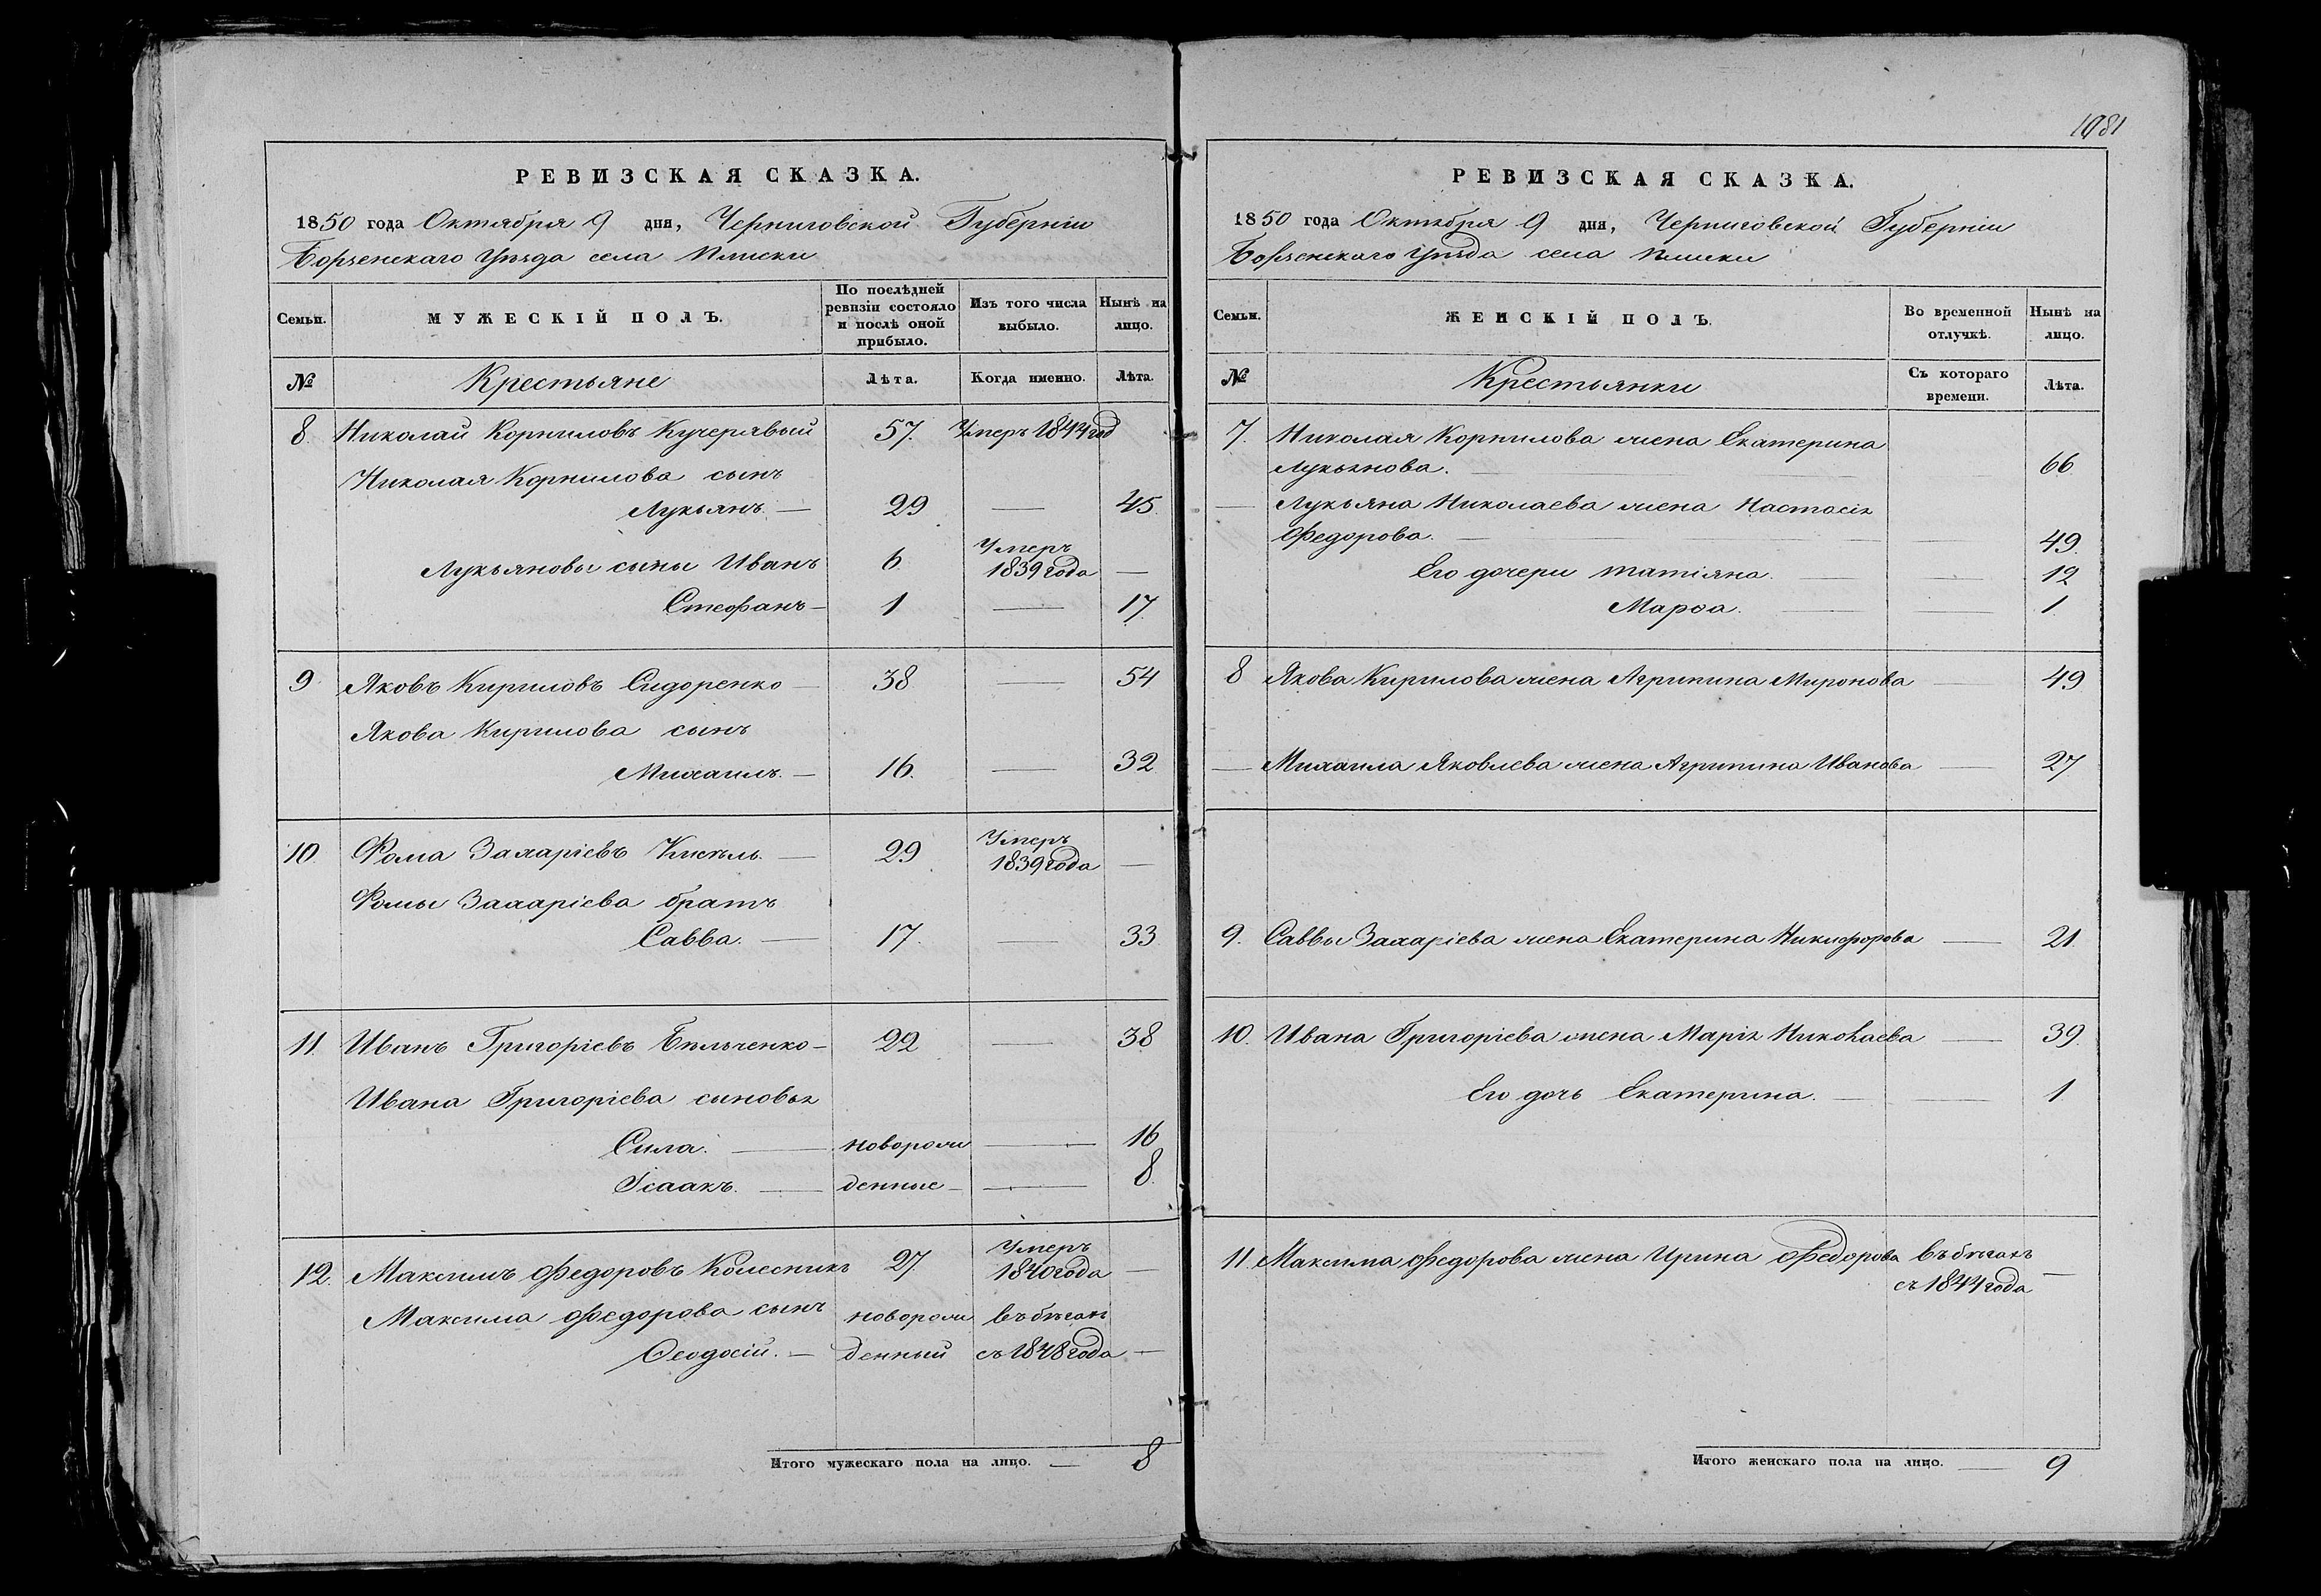 1081
РЕВИЗСКАЯ СКАЗКА.
1850 года Октября 9 дня, Черниговской Губерніи
Борзенскаго Уѣзда села Плиски
Семьи. МУЖЕСКІЙ ПОЛЪ. По послѣдней ревизіи состояло и послѣ оной прибыло. Изъ того числа выбыло. Нынѣ на лицо.
№ Крестьяне Лѣта. Когда именно. Лѣта.
8. Николай Корниловъ Кучерявый 57. Умеръ 1844 год
Николая Корнилова сынъ
Лукьянъ. — 29 — 45.
Лукьяновы сыны Иванъ 6 Умеръ 1839 года —
Стефанъ — 1 — 17.
9 Яковъ Кириловъ Сидоренко — 38 — 54
Якова Кирилова сынъ
Михаилъ. — 16. — 32
10. Фома Захаріевъ Кисѣль. — 29 Умеръ 1839 года —
Фомы Захаріева братъ
Савва. — 17. — 33
11. Иванъ Григоріевъ Бѣльченко — 22 — 38.
Ивана Григоріева сыновья
Сила. — новорож — 16
Ісаакъ. — денные — — 8.
12. Максимъ Федоровъ Колесникъ 27. Умеръ 1840 года —
Максима Федорова сынъ новорож въ бѣгахъ
Ѳеодосій. — денный съ 1848 года —
Итого мужескаго пола на лицо. — 8
РЕВИЗСКАЯ СКАЗКА.
1850 года Октября 9 дня, Черниговской Губерніи
Борзенскаго Уѣзда села Плиски
Семьи. ЖЕНСКІЙ ПОЛЪ. Во временной отлучкѣ. Нынѣ на лицо.
№ Крестьянки Съ котораго времени. Лѣта.
7. Николая Корнилова жена Екатерина
Лукьянова. — 66
— Лукьяна Николаева жена Настасія
Федорова. — — 49.
Его дочери Татіяна. — — 12
Марѳа. — — 1.
8 Якова Кирилова жена Агрипина Миронова — 49
— Михаила Яковлева жена Агрипина Иванова — 27
9. Саввы Захаріева жена Екатерина Никифорова — 21.
10. Ивана Григоріева жена Марія Николаева — 39.
Его дочь Екатерина. — — 1.
11. Максима Федорова жена Ирина Федорова въ бѣгахъ
съ 1844 года —
Итого женскаго пола на лицо. — 9